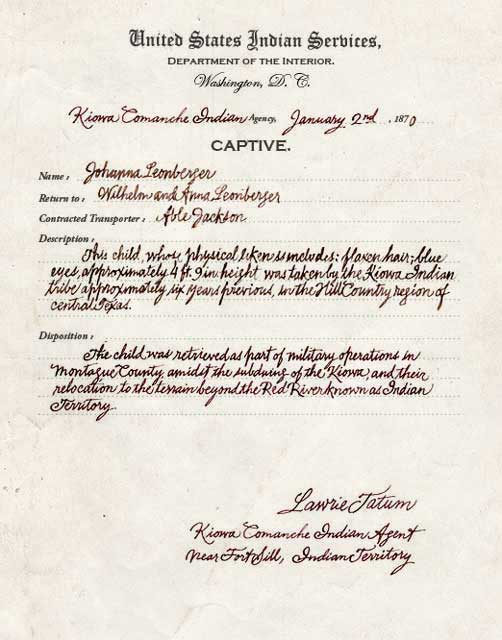 United States Indian Services,
DEPARTMENT OF THE INTERIOR.
Washington, D. C.
Kiowa Comanche Indian Agency, January 2nd, 1870
CAPTIVE.
Name : Johanna Leonberger
Return to : Wilhelm and Anna Leonberger
Contracted Transporter : Able Jackson
Description :
This child, whose physical likeness includes: flaxen hair; blue
eyes, approximately 4 ft. 9 in height was taken by the Kiowa Indian
tribe approximately six years previous, in the Hill Country region of
central Texas.
Disposition :
The child was retrieved as part of military operations in
Montague County amidst the subduing of the Kiowa, and their
relocation to the terrain beyond the Red River known as Indian
Territory.
Lawrie Tatum
Kiowa Comanche Indian Agent
Near Fort Sill, Indian Territory